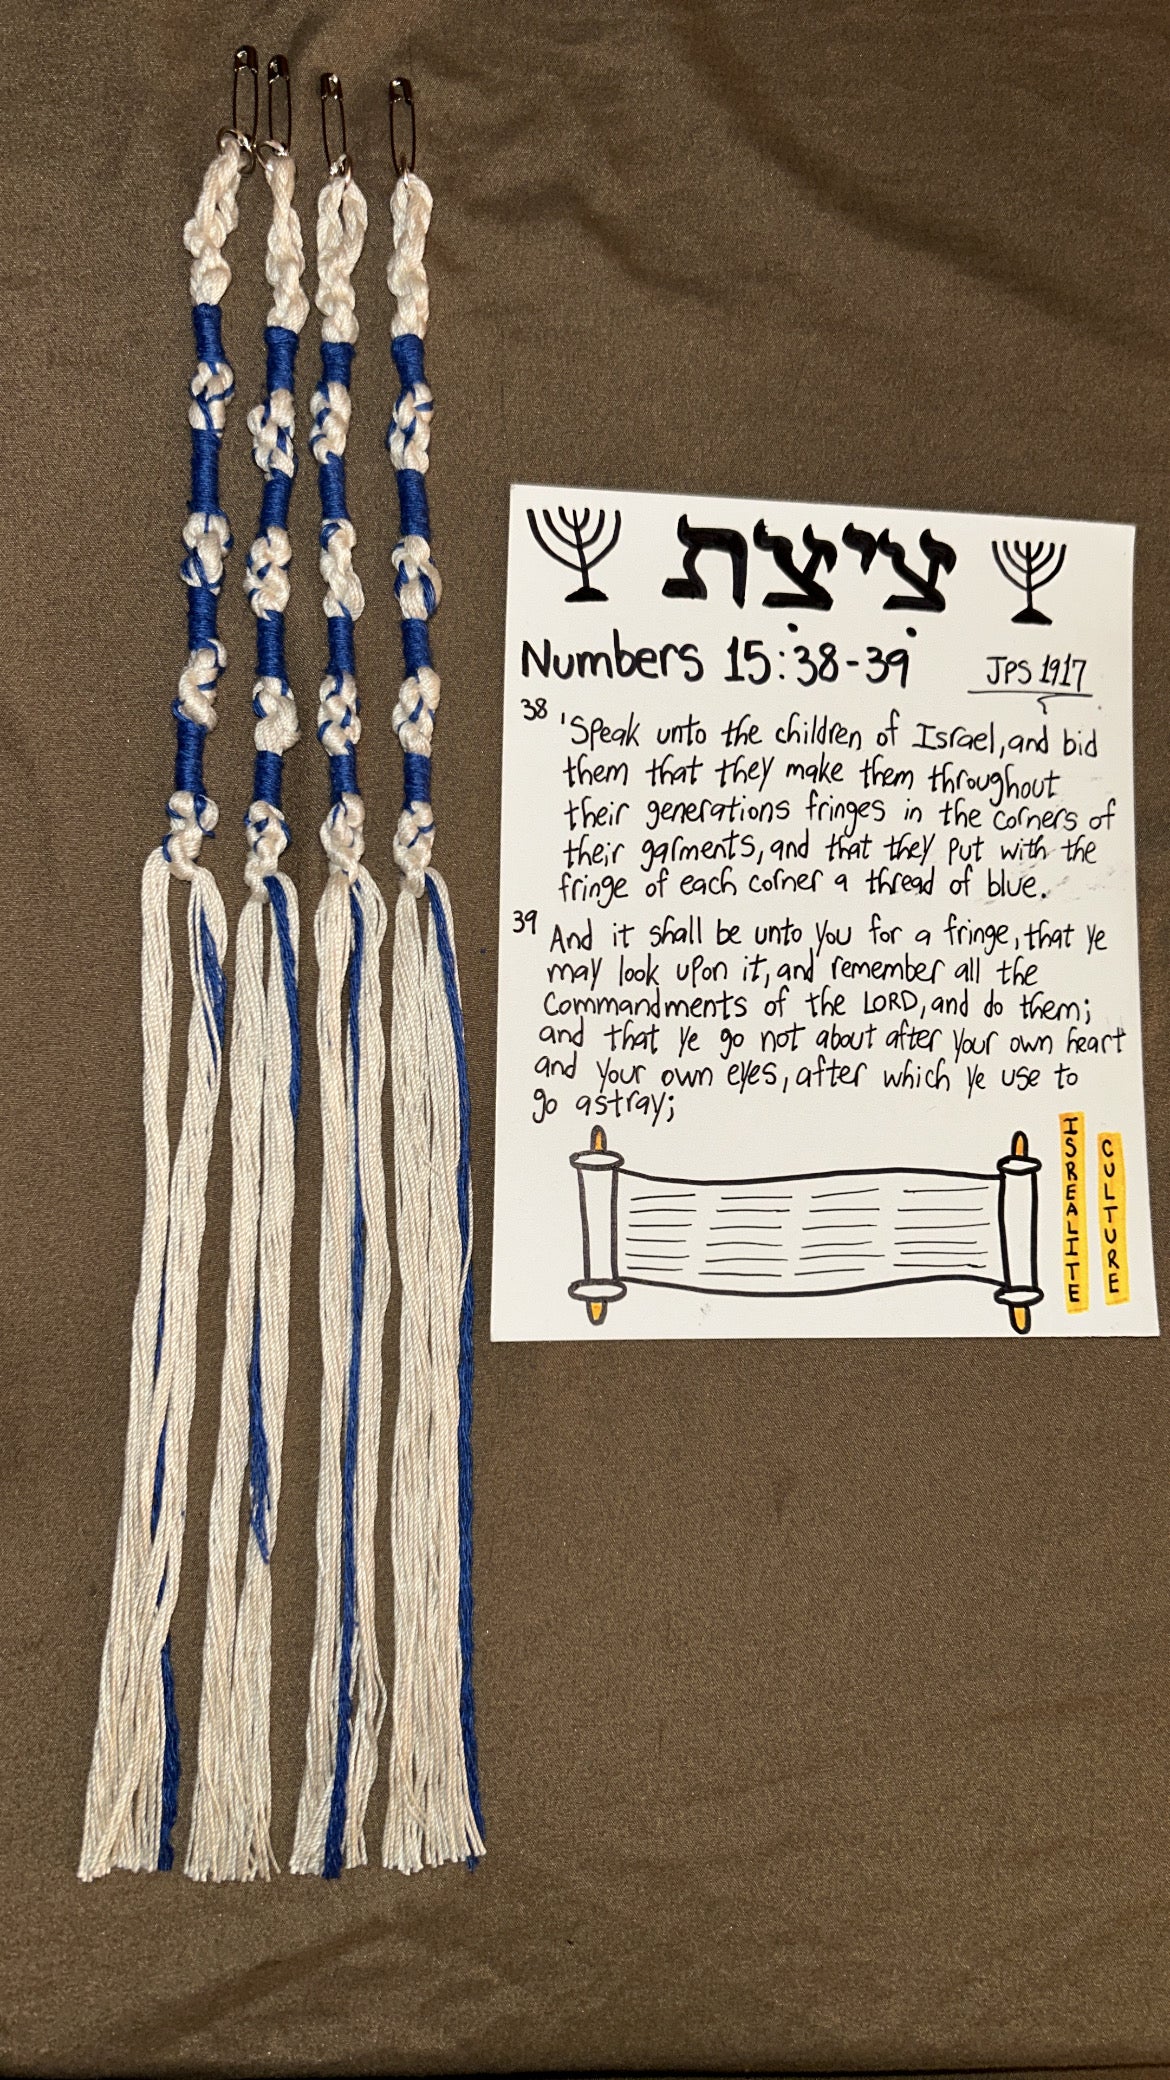 צִיצִת
Numbers 15:38-39
JPS 1917
38 'Speak unto the children of Israel, and bid
them that they make them throughout
their generations fringes in the corners of
their garments, and that they put with the
fringe of each corner a thread of blue.
39 And it shall be unto you for a fringe, that ye
may look upon it, and remember all the
commandments of the LORD, and do them;
and that ye go not about after your own heart
and your own eyes, after which ye use to
go astray;
ISREALITE
CULTURE